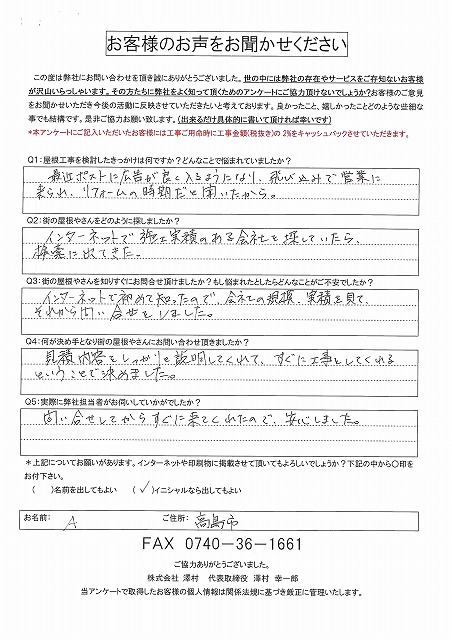 お客様のお声をお聞かせください
この度は弊社にお問い合わせを頂き誠にありがとうございました。世の中には弊社の存在やサービスをご存知ないお客様
が沢山いらっしゃいます。その方たちに弊社をよく知って頂くためのアンケートにご協力頂けないでしょうか?お客様のご意見
をお聞かせいただき今後の活動に反映させていただきたいと考えております。良かったこと、嬉しかったことどのような些細な
事でも結構です。是非ご協力お願い致します。(出来るだけ具体的に書いて頂ければ幸いです)
*本アンケートにご記入いただいたお客様には工事ご用命時に工事金額(税抜き)の2%をキャッシュバックさせていただきます。
Q1:屋根工事を検討したきっかけは何ですか?どんなことで悩まれていましたか?
最近ポストに広告が良く入るようになり、飛び込みで営業に
来られ、リフォームの時期だと聞いたから。
Q2:街の屋根やさんをどのように探しましたか?
インターネットで施工実績のある会社を探していたら、
検索に出てきた。
Q3:街の屋根やさんを知りすぐにお問合せ頂けましたか?もし悩まれたとしたらどんなことがご不安でしたか?
インターネットで初めて知ったので、会社の規模、実績を見て、
それから問い合せをしました。
Q4:何が決め手となり街の屋根やさんにお問い合わせ頂きましたか?
見積内容をしっかりと説明してくれて、すぐに工事をしてくれる
ということで決めました。
Q5:実際に弊社担当者がお伺いしていかがでしたか?
問い合せしてからすぐに来てくれたので、安心しました。
*上記についてお願いがあります。インターネットや印刷物に掲載させて頂いてもよろしいでしょうか?下記の中から〇印を
お付下さい。
( )名前を出してもよい (✓)イニシャルなら出してもよい
お名前: A ご住所: 高島市
FAX 0740-36-1661
ご協力ありがとうございました。
株式会社 澤村 代表取締役 澤村 幸一郎
当アンケートで取得したお客様の個人情報は関係法規に基づき厳正に管理いたします。